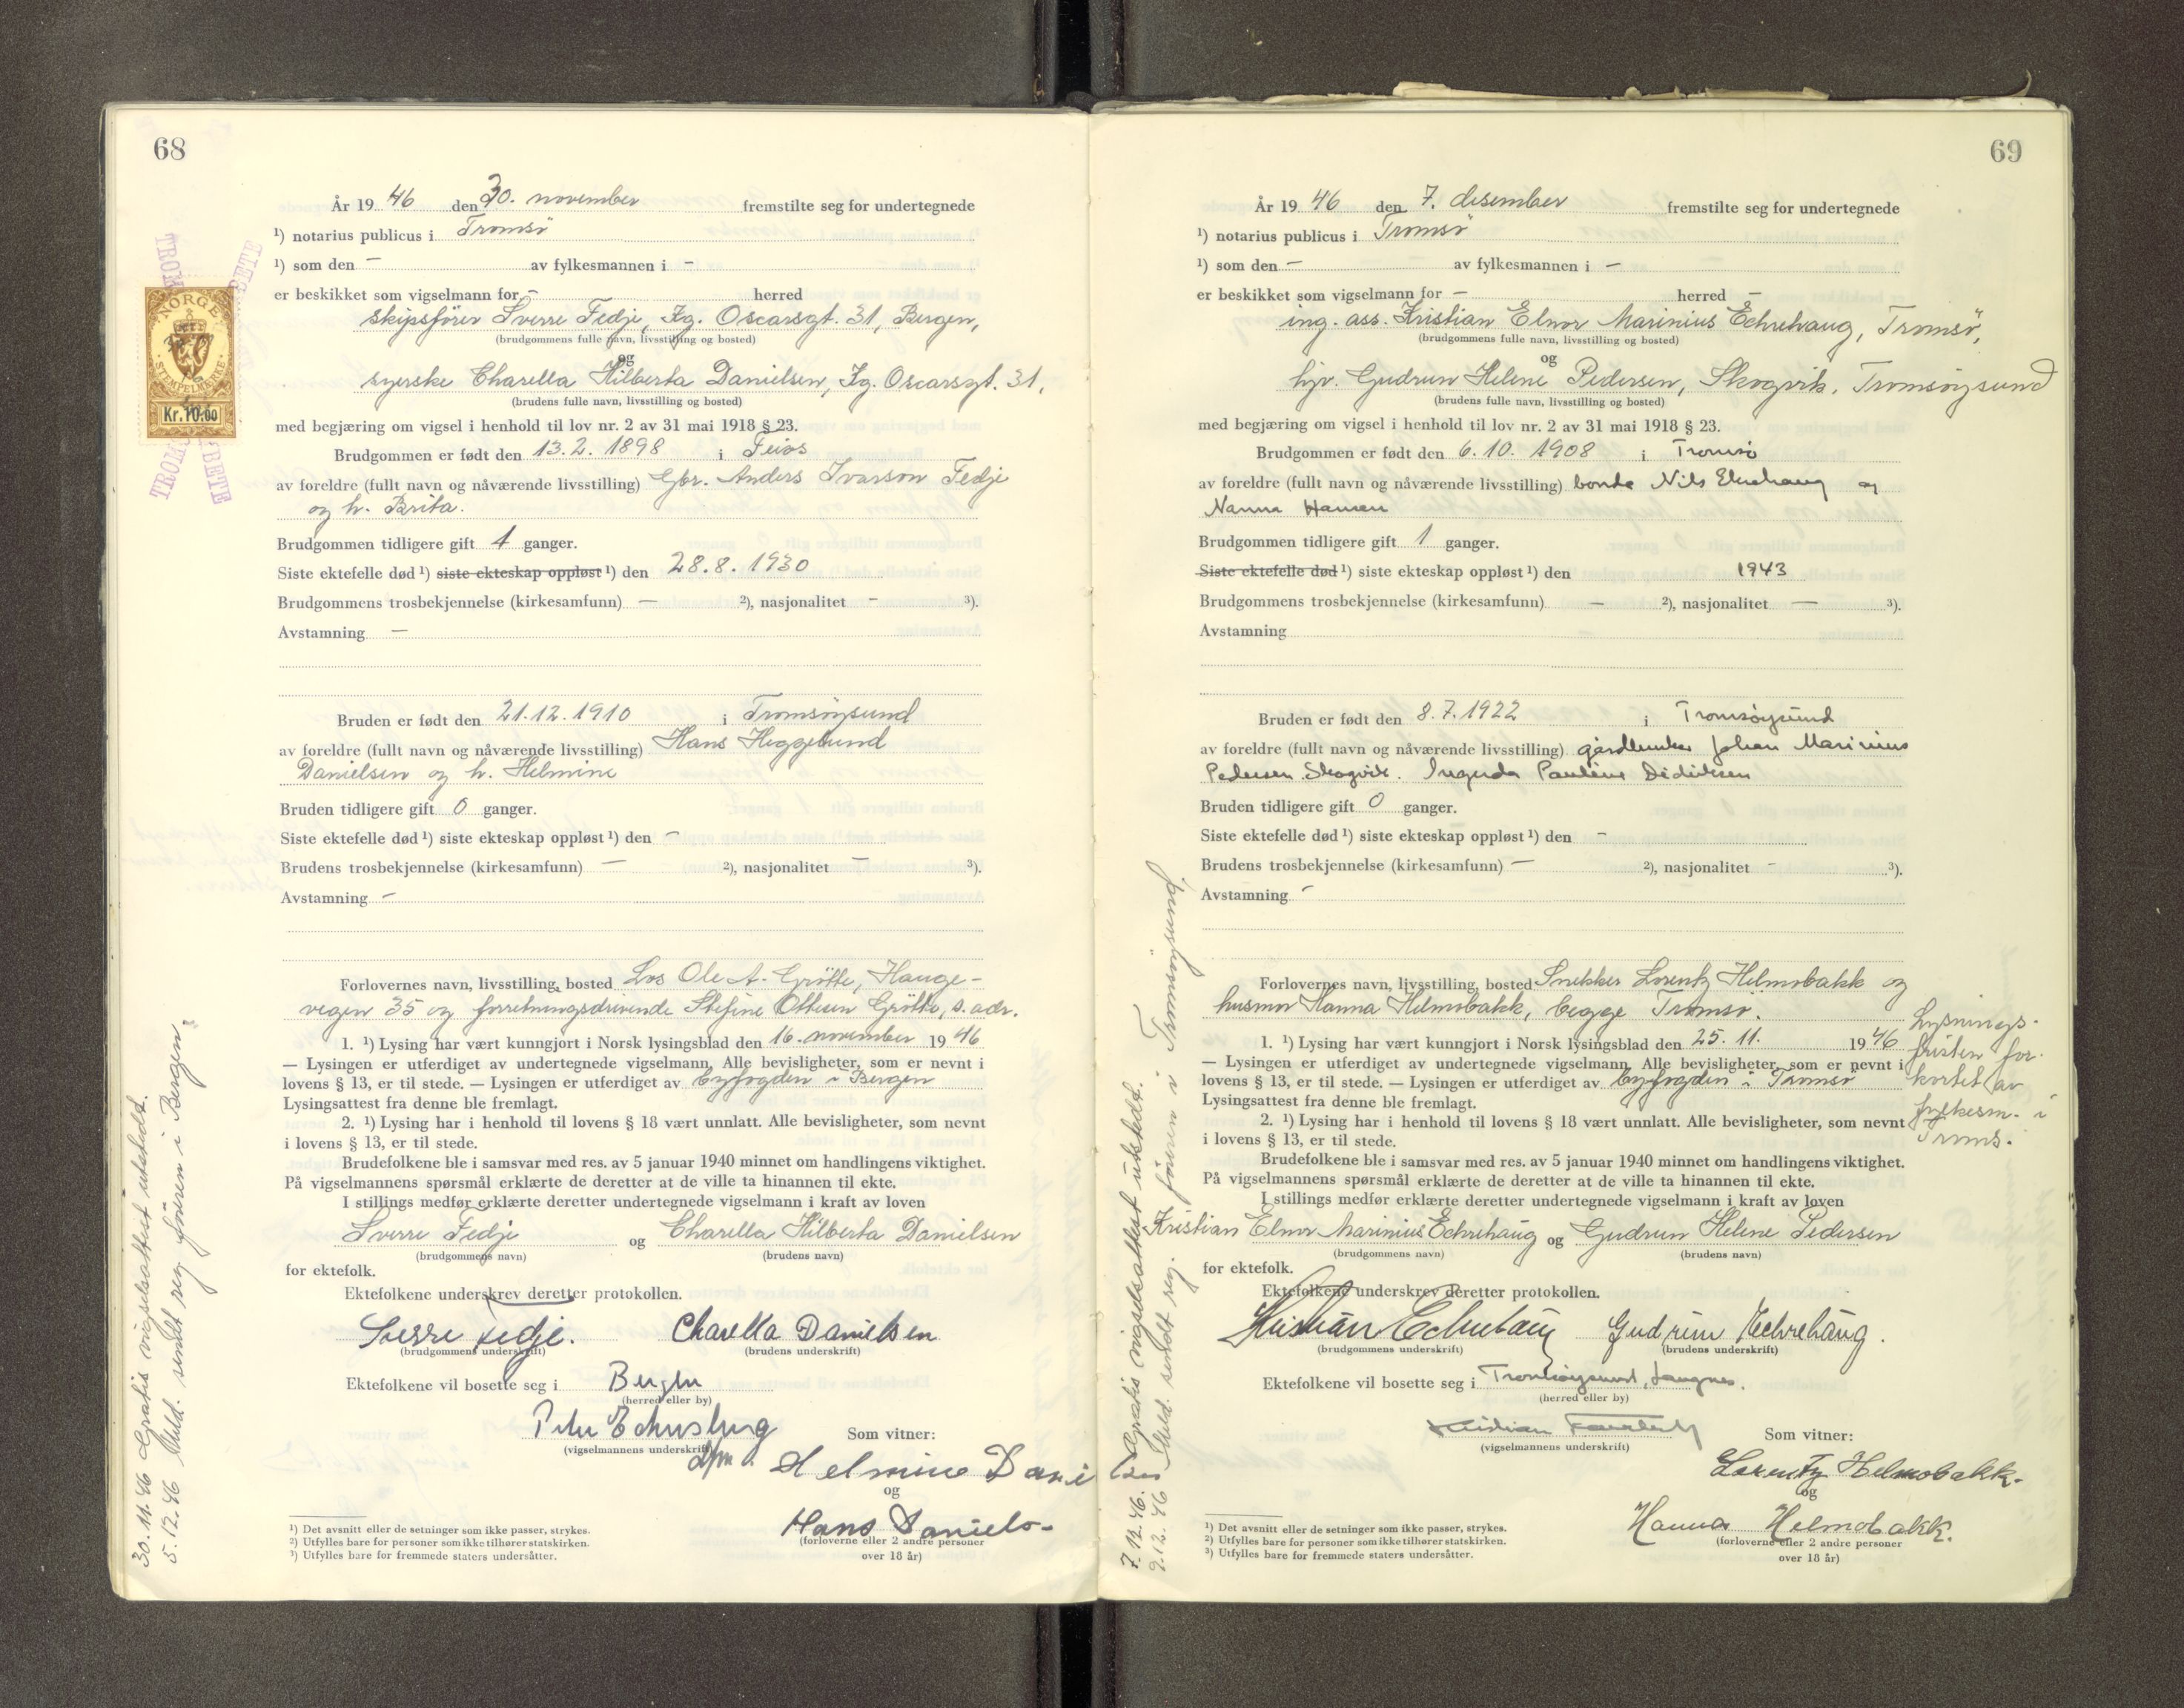 68
År 19 46 den 30. november fremstilte seg for undertegnede
¹) notarius publicus i Tromsö
¹) som den – av fylkesmannen i –
er beskikket som vigselmann for – herred
skipsfører Sverre Fedje, Kg. Oscarsgt. 31, Bergen,
(brudgommens fulle navn, livsstilling og bosted)
og
syerske Charella Hilberta Danielsen, Kg. Oscarsgt. 31,
(brudens fulle navn, livsstilling og bosted)
med begjæring om vigsel i henhold til lov nr. 2 av 31 mai 1918 § 23.
Brudgommen er født den 13.2. 1898 i
av foreldre (fullt navn og nåværende livsstilling) Gbr. Anders Ivarson Fedje
og h. Brita.
Brudgommen tidligere gift 1 ganger.
Siste ektefelle død ¹) siste ekteskap oppløst ¹) den 28.8. 1930
Brudgommens trosbekjennelse (kirkesamfunn) — ²), nasjonalitet – ³).
Avstamning —
Bruden er født den 21.12.1910 i Tromsöysund
av foreldre (fullt navn og nåværende livsstilling) Hans Heggelund
Danielsen og h. Helmine
Bruden tidligere gift 0 ganger.
Siste ektefelle død ¹) siste ekteskap oppløst ¹) den –
Brudens trosbekjennelse (kirkesamfunn) — ²), nasjonalitet — ³).
Avstamning –
Forlovernes navn, livsstilling, bosted Los Ole A. Grötte, Hauge-
vegen 35 og forretningsdrivende Stefine Ottesen Grötte, s. adr.
1. ¹) Lysing har vært kunngjort i Norsk lysingsblad den 16. november 19 46
— Lysingen er utferdiget av undertegnede vigselmann. Alle bevisligheter, som er nevnt i
lovens § 13, er til stede. — Lysingen er utferdiget av byfogden i Bergen
Lysingsattest fra denne ble fremlagt.
2. ¹) Lysing har i henhold til lovens § 18 vært unnlatt. Alle bevisligheter, som nevnt
i lovens § 13, er til stede.
Brudefolkene ble i samsvar med res. av 5 januar 1940 minnet om handlingens viktighet.
På vigselmannens spørsmål erklærte de deretter at de ville ta hinannen til ekte.
I stillings medfør erklærte deretter undertegnede vigselmann i kraft av loven
Sverre Fedje og Charella Hilberta Danielsen
(brudgommens navn) (brudens navn)
for ektefolk.
Ektefolkene underskrev deretter protokollen.
Sverre Fedje. Charella Danielsen
(brudgommens underskrift) (brudens underskrift)
Ektefolkene vil bosette seg i Bergen
(herred eller by)
Som vitner:
(vigselmannens underskrift)
Helmine Danielsen
og
Hans Daniels-
(forloverne eller 2 andre personer
over 18 år)
¹) Det avsnitt eller de setninger som ikke passer, strykes.
²) Utfylles bare for personer som ikke tilhører statskirken.
³) Utfylles bare for fremmede staters undersåtter.
30.11.46 Gratis vigselsattest utstedt.
5.12.46 Meld. sendt reg. föreren i Bergen.
NORGE
STEMPELMERKE
Kr. 10.00
69
År 19 46 den 7. desember fremstilte seg for undertegnede
¹) notarius publicus i Tromsö
¹) som den – av fylkesmannen i –
er beskikket som vigselmann for – herred –
ing. ass. Kristian Elnor Marinius Echrehaug, Tromsö,
(brudgommens fulle navn, livsstilling og bosted)
og
hjv. Gudrun Helene Pedersen, Skogvik, Tromsöysund
(brudens fulle navn, livsstilling og bosted)
med begjæring om vigsel i henhold til lov nr. 2 av 31 mai 1918 § 23.
Brudgommen er født den 6.10. 1908 i Tromsö
av foreldre (fullt navn og nåværende livsstilling) bonde Nils og
Nanna Hansen
Brudgommen tidligere gift 1 ganger.
Siste ektefelle død ¹) siste ekteskap oppløst ¹) den 1943
Brudgommens trosbekjennelse (kirkesamfunn) — ²), nasjonalitet — ³).
Avstamning
Bruden er født den 8.7.1922 i Tromsöysund
av foreldre (fullt navn og nåværende livsstilling) gårdbruker Johan Marinius
Pedersen Skogvik. Pauline Didriksen
Bruden tidligere gift 0 ganger.
Siste ektefelle død ¹) siste ekteskap oppløst ¹) den –
Brudens trosbekjennelse (kirkesamfunn) — ²), nasjonalitet – ³).
Avstamning –
Forlovernes navn, livsstilling, bosted Snekker Lorentz Helmobakk og
husmor Hanna Helmobakk, begge Tromsö.
1. ¹) Lysing har vært kunngjort i Norsk lysingsblad den 25. 11. 19 46
— Lysingen er utferdiget av undertegnede vigselmann. Alle bevisligheter, som er nevnt i
lovens § 13, er til stede. — Lysingen er utferdiget av byfogden i Tromsö
Lysingsattest fra denne ble fremlagt.
2. ¹) Lysing har i henhold til lovens § 18 vært unnlatt. Alle bevisligheter, som nevnt
i lovens § 13, er til stede.
Lysnings-
fristen for-
kortet av
fylkesm. i
Troms.
Brudefolkene ble i samsvar med res. av 5 januar 1940 minnet om handlingens viktighet.
På vigselmannens spørsmål erklærte de deretter at de ville ta hinannen til ekte.
I stillings medfør erklærte deretter undertegnede vigselmann i kraft av loven
Kristian Elnor Marinius Echrehaug og Gudrun Helene Pedersen
(brudgommens navn) (brudens navn)
for ektefolk.
Ektefolkene underskrev deretter protokollen.
Kristian Echrehaug Gudrun Echrehaug.
(brudgommens underskrift) (brudens underskrift)
Ektefolkene vil bosette seg i Tromsöysund, Langnes.
(herred eller by)
Som vitner:
(vigselmannens underskrift)
Lorentz Helmobakk.
og
Hanna Helmobakk.
(forloverne eller 2 andre personer
over 18 år)
¹) Det avsnitt eller de setninger som ikke passer, strykes.
²) Utfylles bare for personer som ikke tilhører statskirken.
³) Utfylles bare for fremmede staters undersåtter.
7.12.46. Gratis vigselsattest utstedt.
9.12.46 Meld. sendt reg. föreren i Tromsöysund